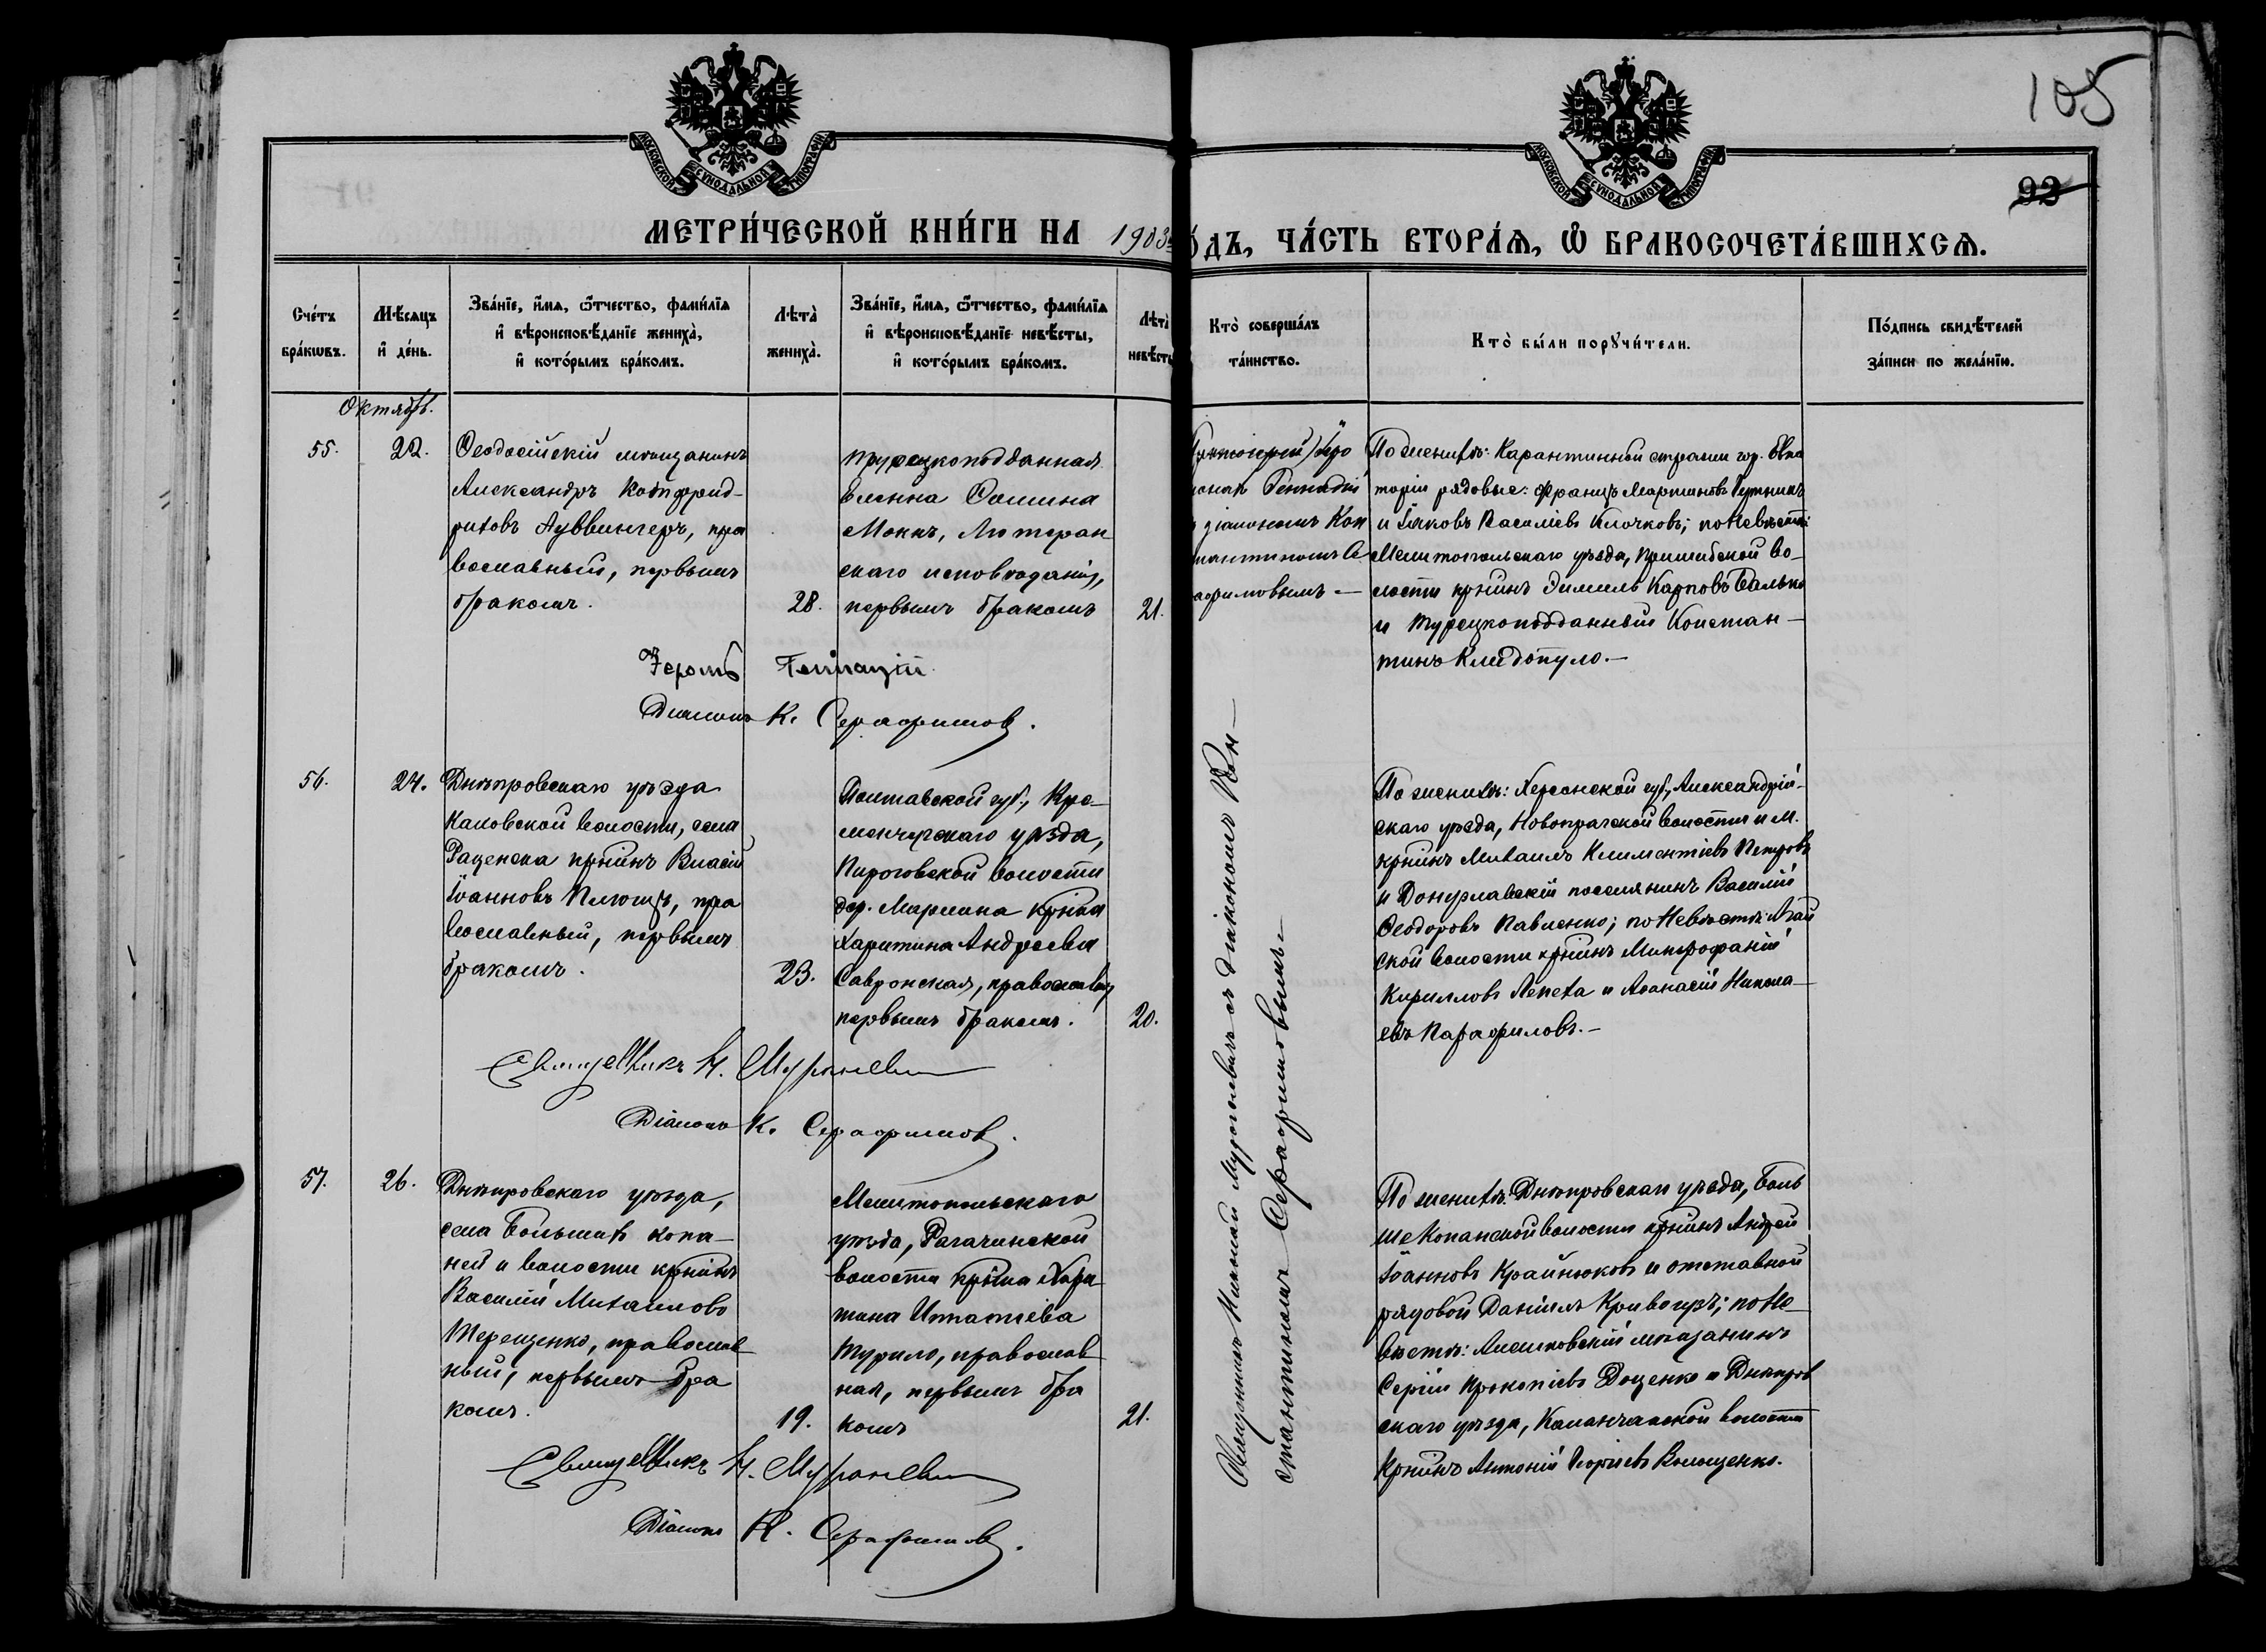 105
92
МОСКОВСКОЙ СѴНОДАЛЬНОЙ ТИПОГРАФІИ
МОСКОВСКОЙ СѴНОДАЛЬНОЙ ТИПОГРАФІИ
МЕТРИ́ЧЕСКОЙ КНИ́ГИ НА 1903
О́ДЪ, ЧА́СТЬ ВТОРА́Ѧ, Ѽ БРАКОСОЧЕТА́ВШИХСѦ.
Сче́тъ бра́кωвъ.
Мѣ́сяцъ и҆ де́нь.
Зва́нїе, и҆́мѧ, ѻ҆́тчество, фами́лїѧ
и҆ вѣроисповѣ́данїе жениха̀,
и҆ кото́рымъ бра́комъ.
Лѣта̀ жениха̀.
Зва́нїе, и҆́мѧ, ѻ҆́тчество, фами́лїѧ
и҆ вѣроисповѣ́данїе невѣ́сты,
и҆ кото́рымъ бра́комъ.
Лѣта̀ невѣ́сты
Кто̀ соверша́лъ
та́инство.
Кто̀ бы́ли порꙋчи́тели.
По́дпись свидѣ́телей
за́писи по жела́нїю.
Октябрь.
55.
22.
Ѳеодосійскій мѣщанинъ
Александръ Готфрид-
риховъ Луввингеръ, пра
вославный, первымъ
бракомъ.
28.
турецкоподданная
Оомина
Моккъ, Лютеран
скаго исповѣданія,
первымъ бракомъ
21.
Іеро
монахъ Геннадій
діакономъ Кон
стантиномъ Се
рафимовымъ —
По женихѣ: Карантинной стражи гор. Евпа
торіи рядовые: Францъ Мартиновъ
и Іаковъ Василіевъ Клочковъ; по невѣстѣ:
Мелитопольскаго уѣзда, Пришибской во-
лости крн̃инъ Эмиль Карповъ
и турецкоподданный Констан-
тинъ Клидопуло.—
Іером. Геннадій
Діаконъ К. Серафимов.
56.
24.
Днѣпровскаго уѣзда
Каховской волости, села
Раденска крн̃инъ Власій
Іоанновъ Плющъ, пра
вославный, первымъ
бракомъ.
23.
Полтавской губ., Кре-
менчугскаго уѣзда,
Пироговской волости
дер. крн̃ка
Харитина Андреева
Савронская, православн.
первымъ бракомъ.
20.
По женихѣ: Херсонской губ., Александрій-
скаго уѣзда, Новопражской волости и м.
крн̃инъ Михаилъ Климентіевъ Петровъ
и Донузлавскій поселянинъ Василій
Ѳеодоровъ Павленко; по невѣстѣ: Агай
ской волости крн̃инъ Митрофаній
Кирилловъ Лепеха и Аѳанасій Никола-
евъ Парафиловъ.—
Священникъ Н. Мураневич
Діаконъ К. Серафимов.
57.
26.
Днѣпровскаго уѣзда,
села Большихъ Копа-
ней и волости крн̃инъ
Василій Михаиловъ
Терещенко, православ
ный, первымъ бра
комъ.
19.
Мелитопольскаго
уѣзда, Рагачинской
волости крн̃ка Хари
тина Игнатіева
Турило, православ
ная, первымъ бра
комъ
21.
По женихѣ: Днѣпровскаго уѣзда, Боль
ше Копанской волости крн̃инъ Андрей
Іоанновъ Крайнюковъ и отставной
рядовой Даніилъ; по не
вѣстѣ: Алешковскій мѣщанинъ
Сергій Прокопіевъ Доценко и Днѣпров
скаго уѣзда, Каланчакской волости
крн̃инъ Антоній Георгіевъ Волощенко.
Священникъ Н. Мураневич
Діаконъ К. Серафимов.
Священникъ Николай съ діакономъ Кон-
стантиномъ Серафимовымъ—